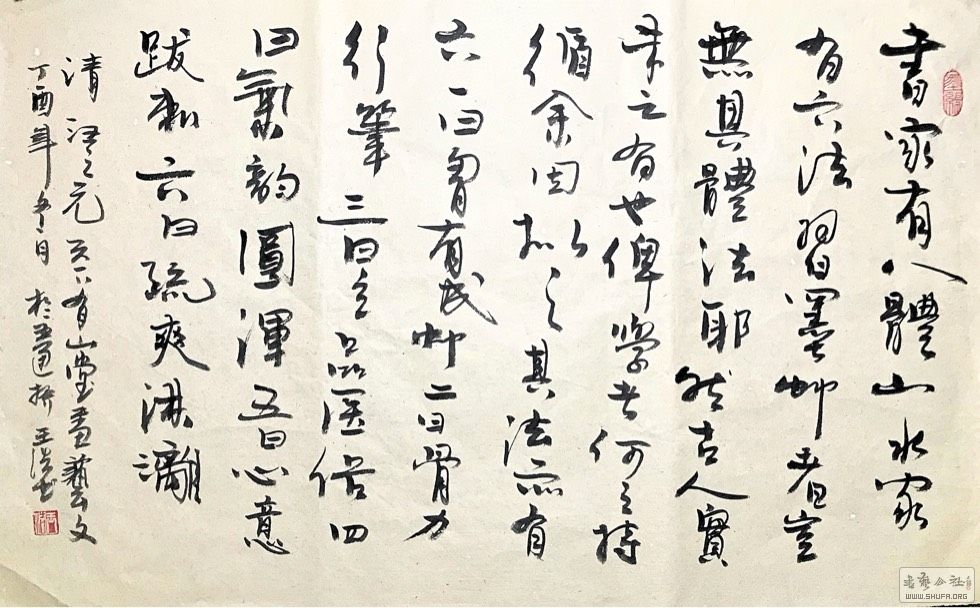 書家有八體山水家
有六法習墨竹者豈
無具體法耶然古人實
未之有也俾學者何之持
循余因拟之其法亦有
六一曰胸有成竹二曰骨力
行筆三曰立品医俗四
曰氣韵圓渾五曰心意
跋和六曰疏爽淋漓
清汪之元天下有山堂畫藝文
丁酉年 月於
書藝公社
WWW.SHUFA.ORG